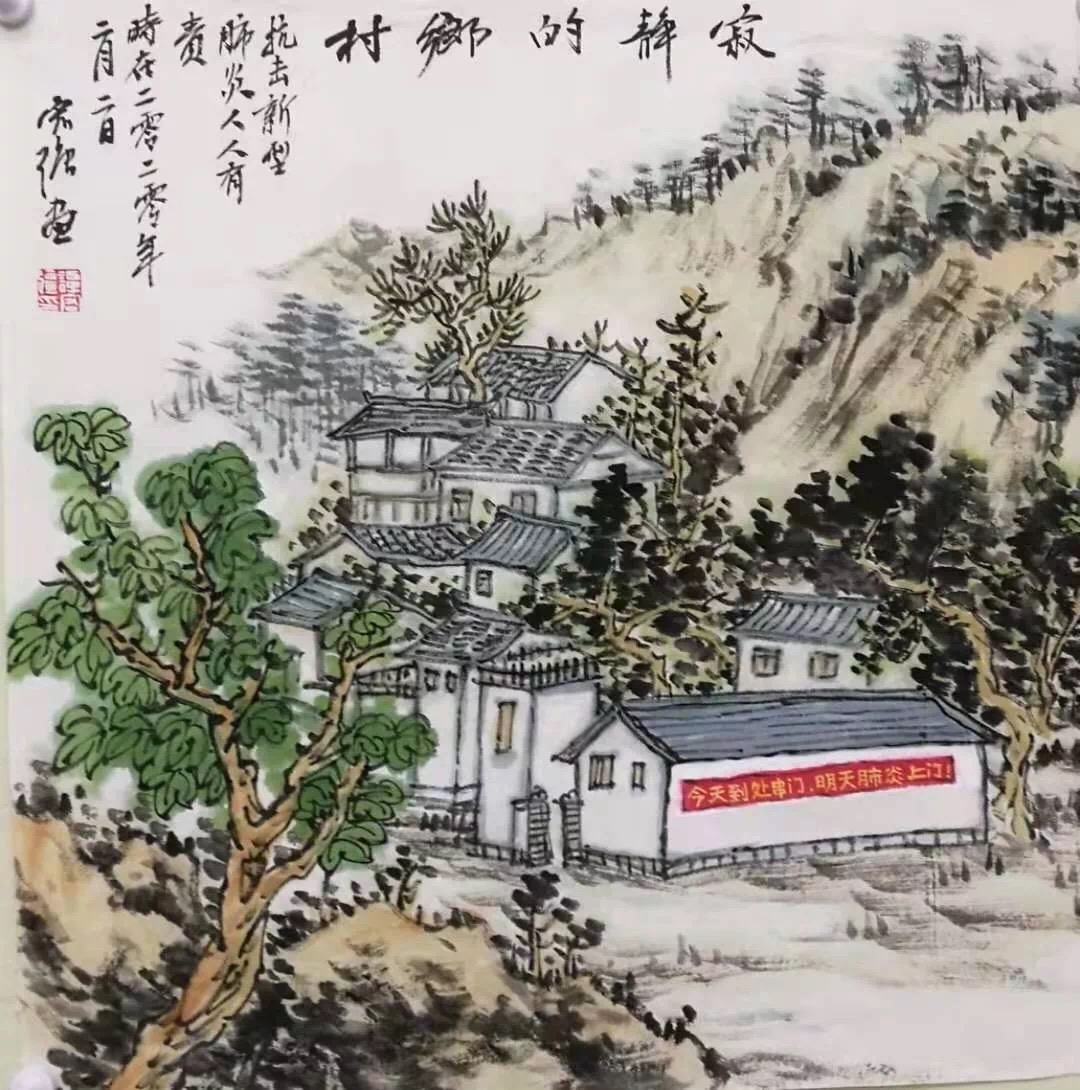 寂静的鄉村
抗击新型
肺炎人人有
责
時在二零二零年
二月二日
今天到处串门，明天肺炎上门！